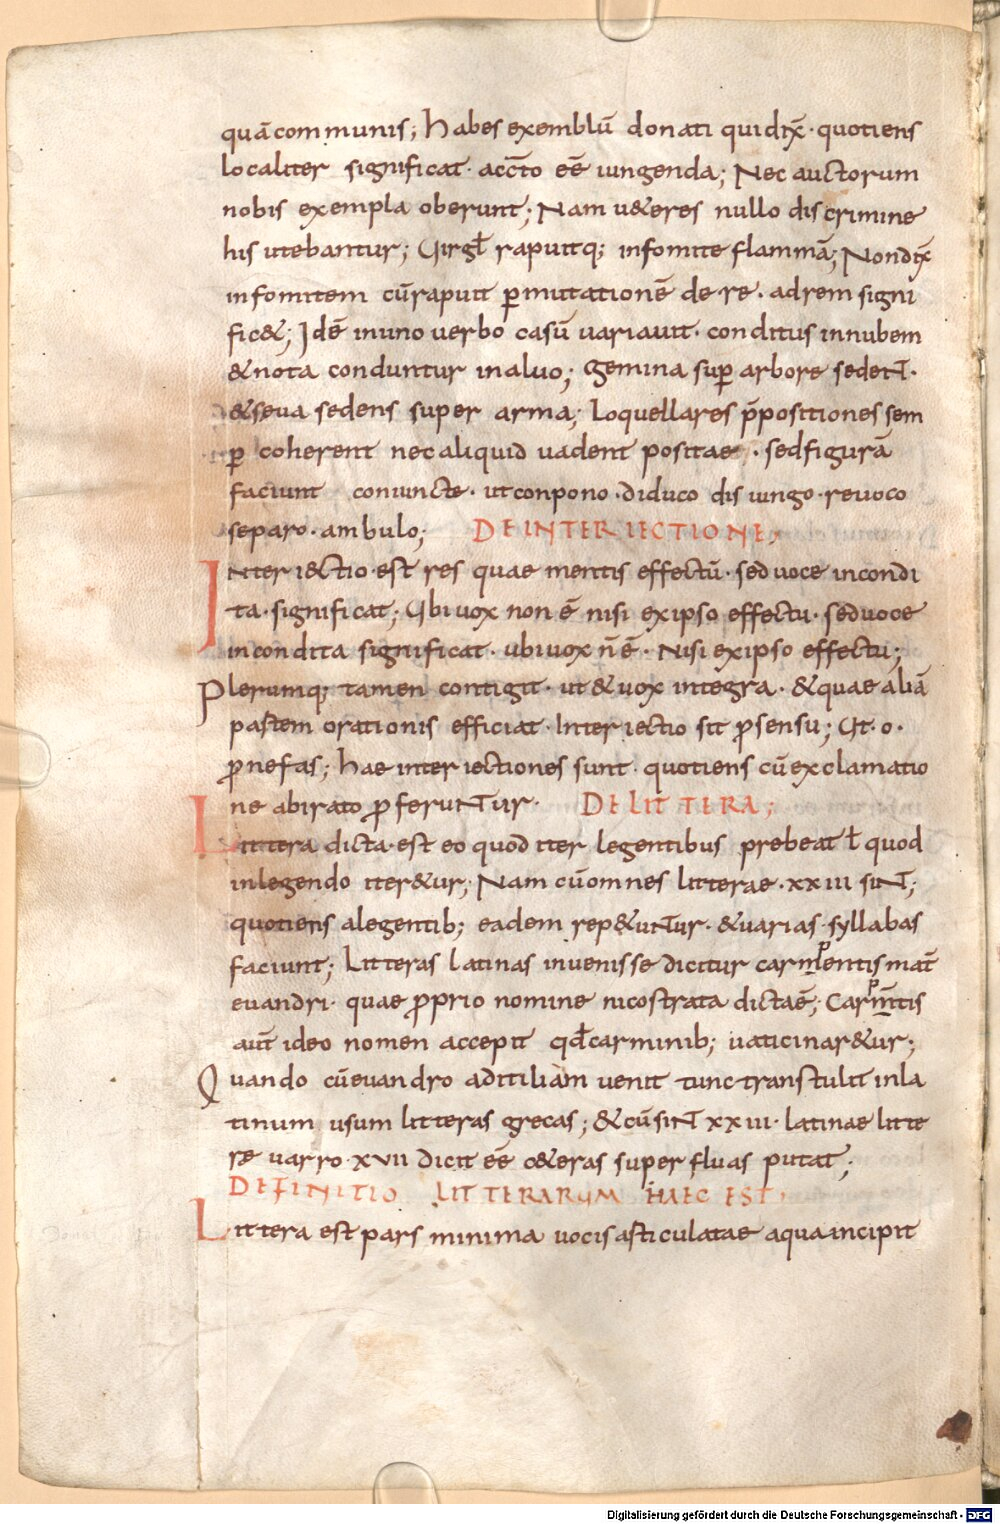 quācommunis; habes exemblū donati quidix̄· quotiens
localiter significat· acc̄to eē iungenda; Nec auctorum
nobis exempla oberunt; Nam u&eres nullo discrimine
his utebantur; Uirgł raputtq; infomite flammā; Nondix̄
infomitem cūraputt ꝑmutationē de re· adrem signi
fic&; Idē inuno uerbo casū uariauit· conditus innubem
&nota conduntur inaluo; Gemina suꝑ arbore sedeNt·
&seua sedens super arma; Loquellares p̄positiones sem
ꝑ coherent nec aliquid uadent positae· sedfigurā
faciunt coniuncte· ut conpono· diduco disiungo· reuoco
separo· ambulo; DE INTERIECTIONE;
INteriectio est res quae mentis effectū· sed uoce incondi
ta· significat; Ubi uox non ē nisi exipso effectu· seduoce
incondita significat· ubi uox n̄ ē· Nisi exipso effectu;
Plerumq; tamen contigit· ut & uox integra· & quae aliā
partem orationis efficiat· Interiectio sit ꝓsensu; Ut· o·
ꝓnefas; hae interiectiones sunt· quotiens cū exclamatio
ne abirato ꝓferuNTur· DE LITTERA;
Littera dicta est eo quod iter legentibus prebeat ł quod
inlegendo iter&ur; Nam cū omnes litterae· xxiii siNt;
quotiens alegentib; eadem rep&uNTur· &uarias syllabas
faciunt; Litteras latinas inuenisse dicitur carmpentis mat̄
euandri· quae ꝓprio nomine nicostrata dictaē; Carmp̄tis
aut̄ ideo nomen accepit qđcarminib; uaticinar&ur;
Quando cūeuandro aditiliam uenit tunc transtulit inla
tinum usum litteras grecas; &cūsiNt xxiii· latinae litte
re uarro· xvii dicit eē c&eras superfluas putat;
DEFINITIO LITTERARUM HAEC EST;
Littera est pars minima uocis articulatae aqua incipit
Digitalisierung gefördert durch die Deutsche Forschungsgemeinschaft - DFG